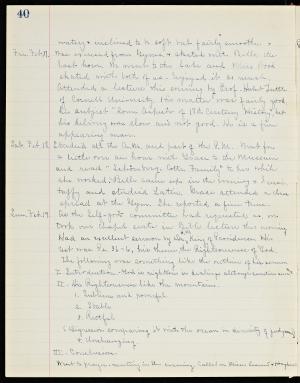 40
watery & inclined to be soft but fairly smooth &
Fri. Feb 17. Was excused from Gym & skated with Belle the
last hour. We went to the lake and Miss Pond
skated with both of us. Enjoyed it so much.
Attended a lecture this evening by Prof.
of Cornell University. His matter was fairly good.
his subject "Some Aspects of 18th Century History", but
his delivery was slow and not good. He is a fine
appearing man.
Sat. Feb 18. Studied all the A.M. and part of the P.M. Went for
a little over an hour with Grace to the Museum
and read " Family" to her while
she worked. Belle came up in the evening &
taffy and studied Latin. Grace attended a
spread at the Gym. She reported a fine time.
Sun. Feb. 19. As the committee had requested us, we
took our chapel seats in Bible lecture this morning
Had an excellent sermon by Dr. King of Providence. His
text was Ps. 36-6, his theme the Righteousness of God.
The following was something like the outline of his sermon
I. Introduction - God is righteous in dealings although
II. His Righteousness like the mountains.
1. Sublime and powerful
2. Stable
3. Restful
(Digression comparing it with the ocean in
4. Unchanging
III. Conclusion.
Went to prayer-meeting in the evening. Called on Miss